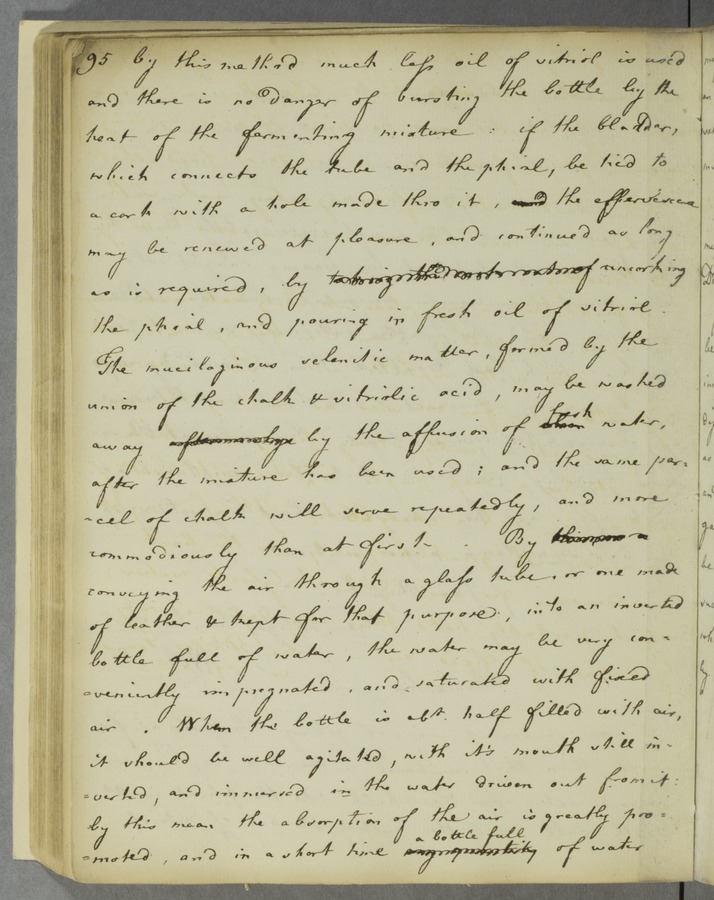 95 by this method much less oil of vitriol is used
and there is no danger of bursting the bottle by the
heat of the fermenting mixture : if the bladder,
which connects the tube and the phial, be tied to
a cork with a hole made thro it, and the effervescence
may be renewed at pleasure, and continued as long
as is required, by uncorking
the phial, and pouring in fresh oil of vitriol.
The mucilaginous selenitic matter, formed by the
union of the chalk & vitriolic acid, may be washed
away by the affusion of fresh water,
after the mixture has been used ; and the same par=
=cel of chalk will serve repeatedly, and more
commodiously than at first. By
conveying the air through a glass tube, or one made
of leather & kept for that purpose, into an inverted
bottle full of water, the water may be very con=
=veniently impregnated, and saturated with fixed
air. When the bottle is abt. half filled with air,
it should be well agitated, with it's mouth still in-
=verted, and immersed in the water driven out from it:
by this mean the absorption of the air is greatly pro=
=moted, and in a short time a bottle full of water